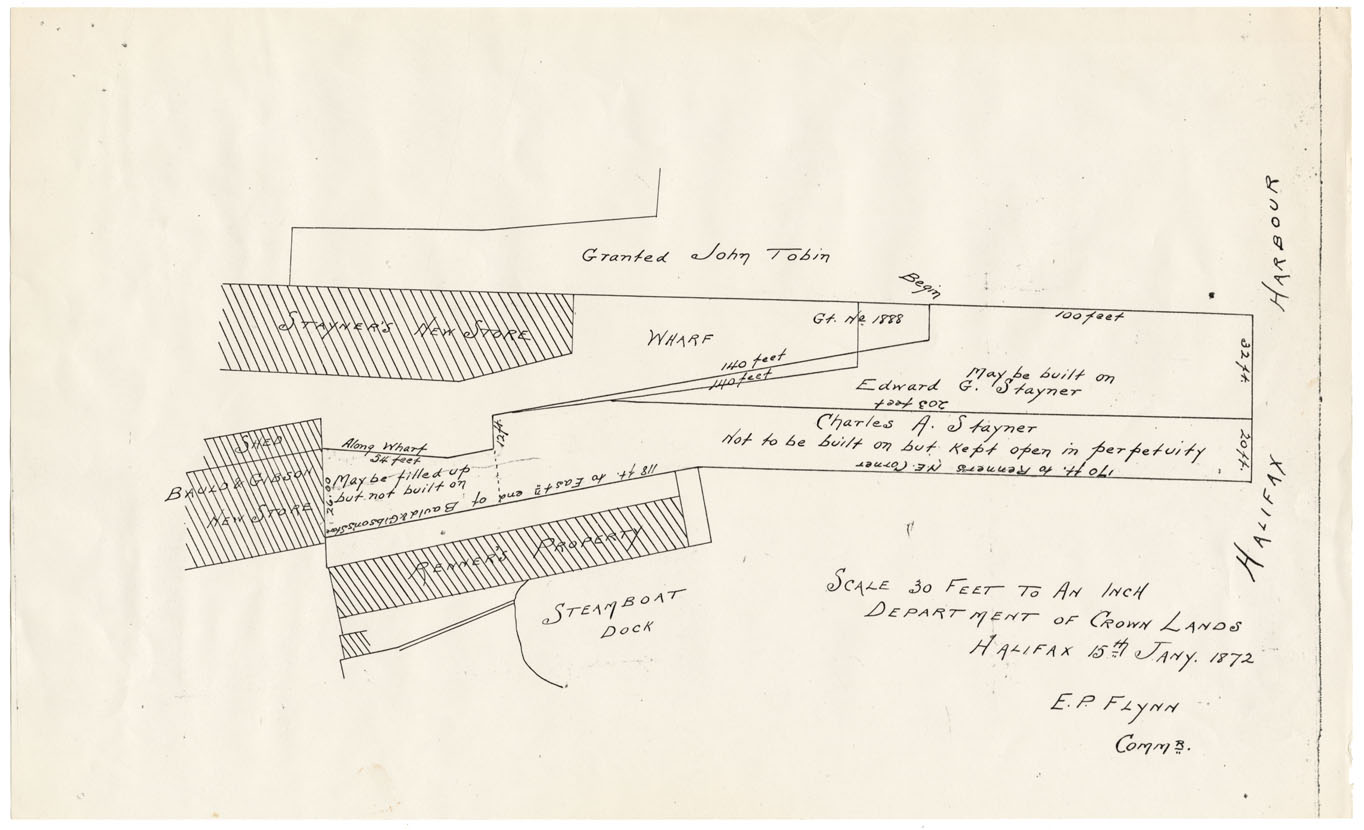 Granted John Tobin
Begin
HALIFAX HARBOUR
STAYNER'S NEW STORE
WHARF
Gt. No 1888
100 feet
32 ft
140 feet
140 feet
May be built on
Edward G. Stayner
203 feet
Charles A. Stayner
Not to be built on but kept open in perpetuity
170 ft. to Renners N.E. Corner
20 ft.
12 ft.
SHED
Along Wharf
54 feet
BAULD & GIBSON
NEW STORE
26.00
May be filled up
but not built on
118 ft. to East'n end of Bauld & Gibson's Store
RENNER'S PROPERTY
STEAMBOAT
DOCK
SCALE 30 FEET TO AN INCH
DEPARTMENT OF CROWN LANDS
HALIFAX 15th JANY. 1872
E.P. FLYNN
Commr.